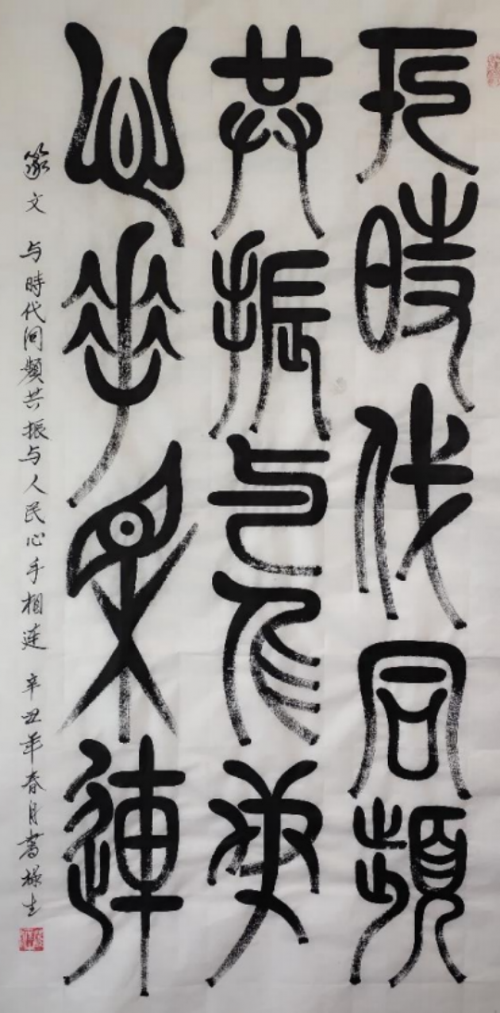 与時代同頻
共振与人民
心手相連
篆文 与時代同頻共振与人民心手相連 辛丑年春月書振生